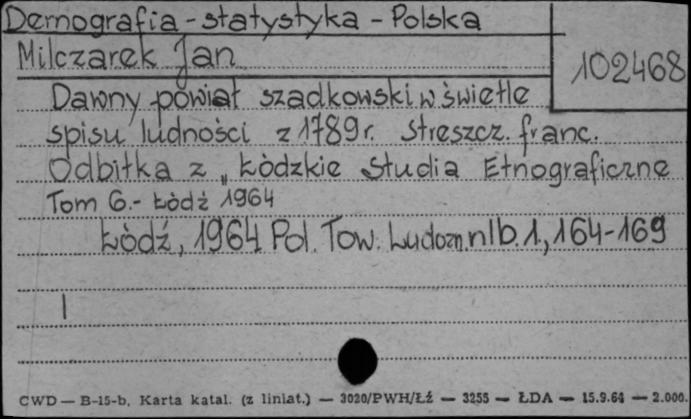 Demografia - statystyka - Polska
Milczarek Jan
102468
Dawny powiat szadkowski w świetle
spisu ludności z 1789 r. Streszcz. franc.
Odbitka z „Łódzkie Studia Etnograficzne
Tom 6.- Łódź 1964
Łódź, 1964 Pol. Tow. Ludozn. nlb. 1, 164-169
CWD — B-15-b. Karta katal. (z liniat.) — 3020/PWH/Łź — 3255 — ŁDA — 15.9.64 — 2.000.